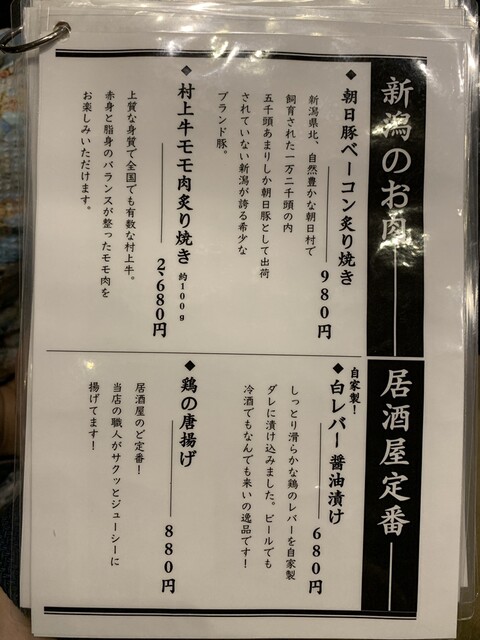 新潟のお肉
◆朝日豚ベーコン炙り焼き
980円
新潟県北、自然豊かな朝日村で
飼育された一万二千頭の内
五千頭あまりしか朝日豚として出荷
されていない新潟が誇る希少な
ブランド豚。
◆村上牛モモ肉炙り焼き 約100g
2,680円
上質な身質で全国でも有数な村上牛。
赤身と脂身のバランスが整ったモモ肉を
お楽しみいただけます。
居酒屋定番
自家製!
◆白レバー醤油漬け
680円
しっとり滑らかな鶏のレバーを自家製
ダレに漬け込みました。ビールでも
冷酒でもなんでも来いの逸品です!
◆鶏の唐揚げ
880円
居酒屋のど定番!
当店の職人がサクッとジューシーに
揚げてます!